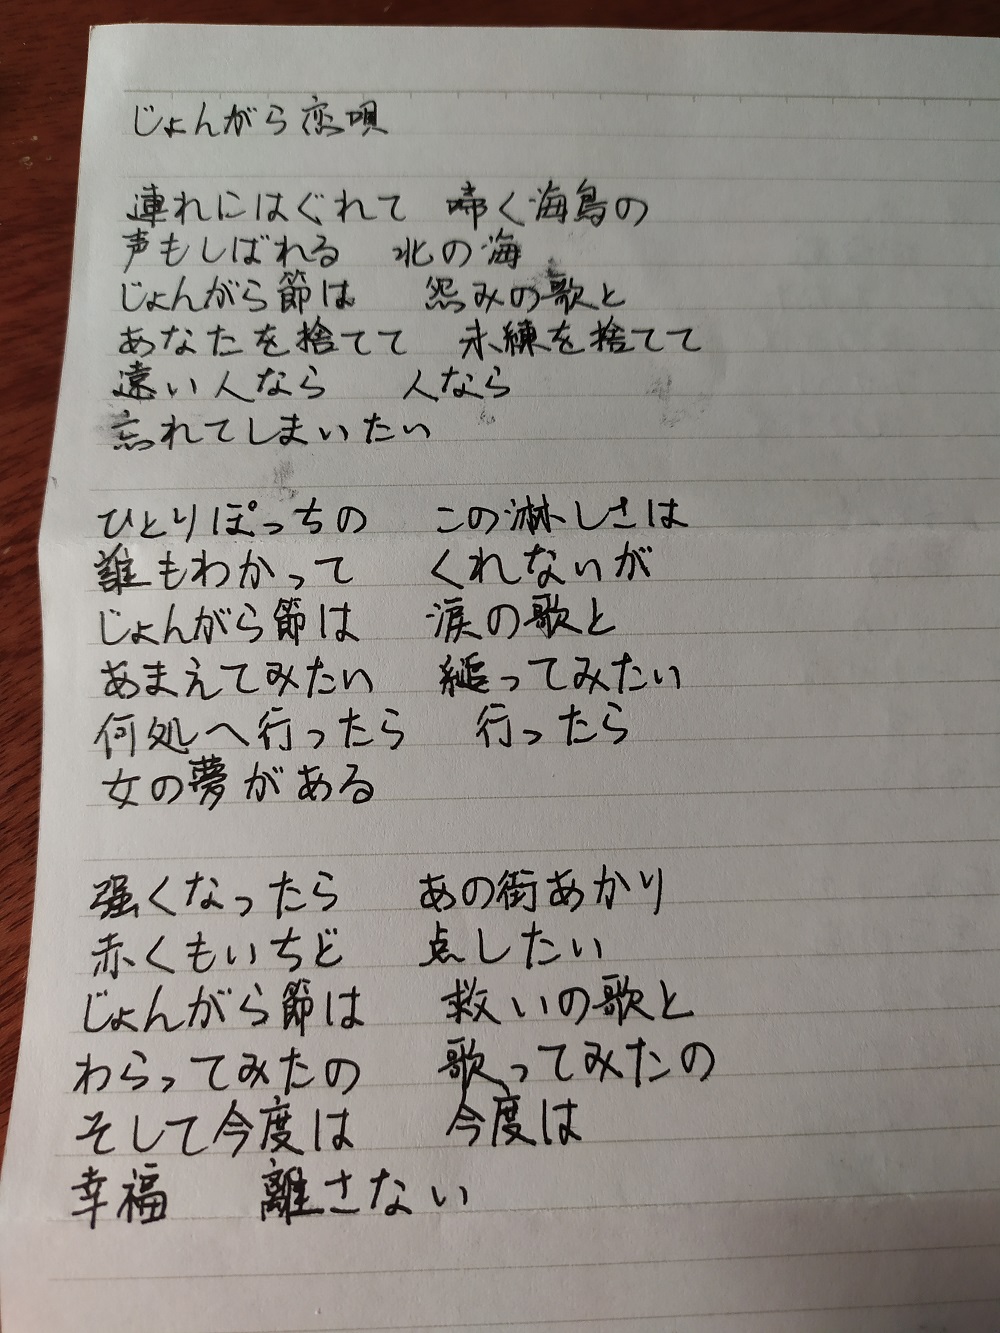 じょんがら恋唄
連れにはぐれて　啼く海鳥の
声もしばれる　北の海
じょんがら節は　怨みの歌と
あなたを捨てて　未練を捨てて
遠い人なら　人なら
忘れてしまいたい
ひとりぽっちの　この淋しさは
誰もわかって　くれないが
じょんがら節は　涙の歌と
あまえてみたい　縋ってみたい
何処へ行ったら　行ったら
女の夢がある
強くなったら　あの街あかり
赤くもいちど　点したい
じょんがら節は　救いの歌と
わらってみたの　歌ってみたの
そして今度は　今度は
幸福　離さない